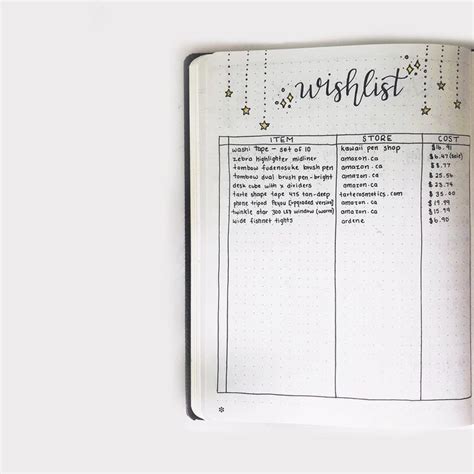 wishlist
ITEM STORE COST
washi tape – set of 10 kawaii pen shop $16.91
zebra highlighter midliner amazon.ca $6.47 (each)
tombow fudenosuke brush pen amazon.ca $8.77
tombow dual brush pen - bright amazon.ca $25.56
desk cube with x dividers amazon.ca $23.74
tarte shape tape 475 tan-deep tartecosmetics.com $35.00
phone tripod (upgraded version) amazon.ca $19.99
twinkle star 300 LED window (warm) amazon.ca $19.99
wide fishnet tights ardene $6.90